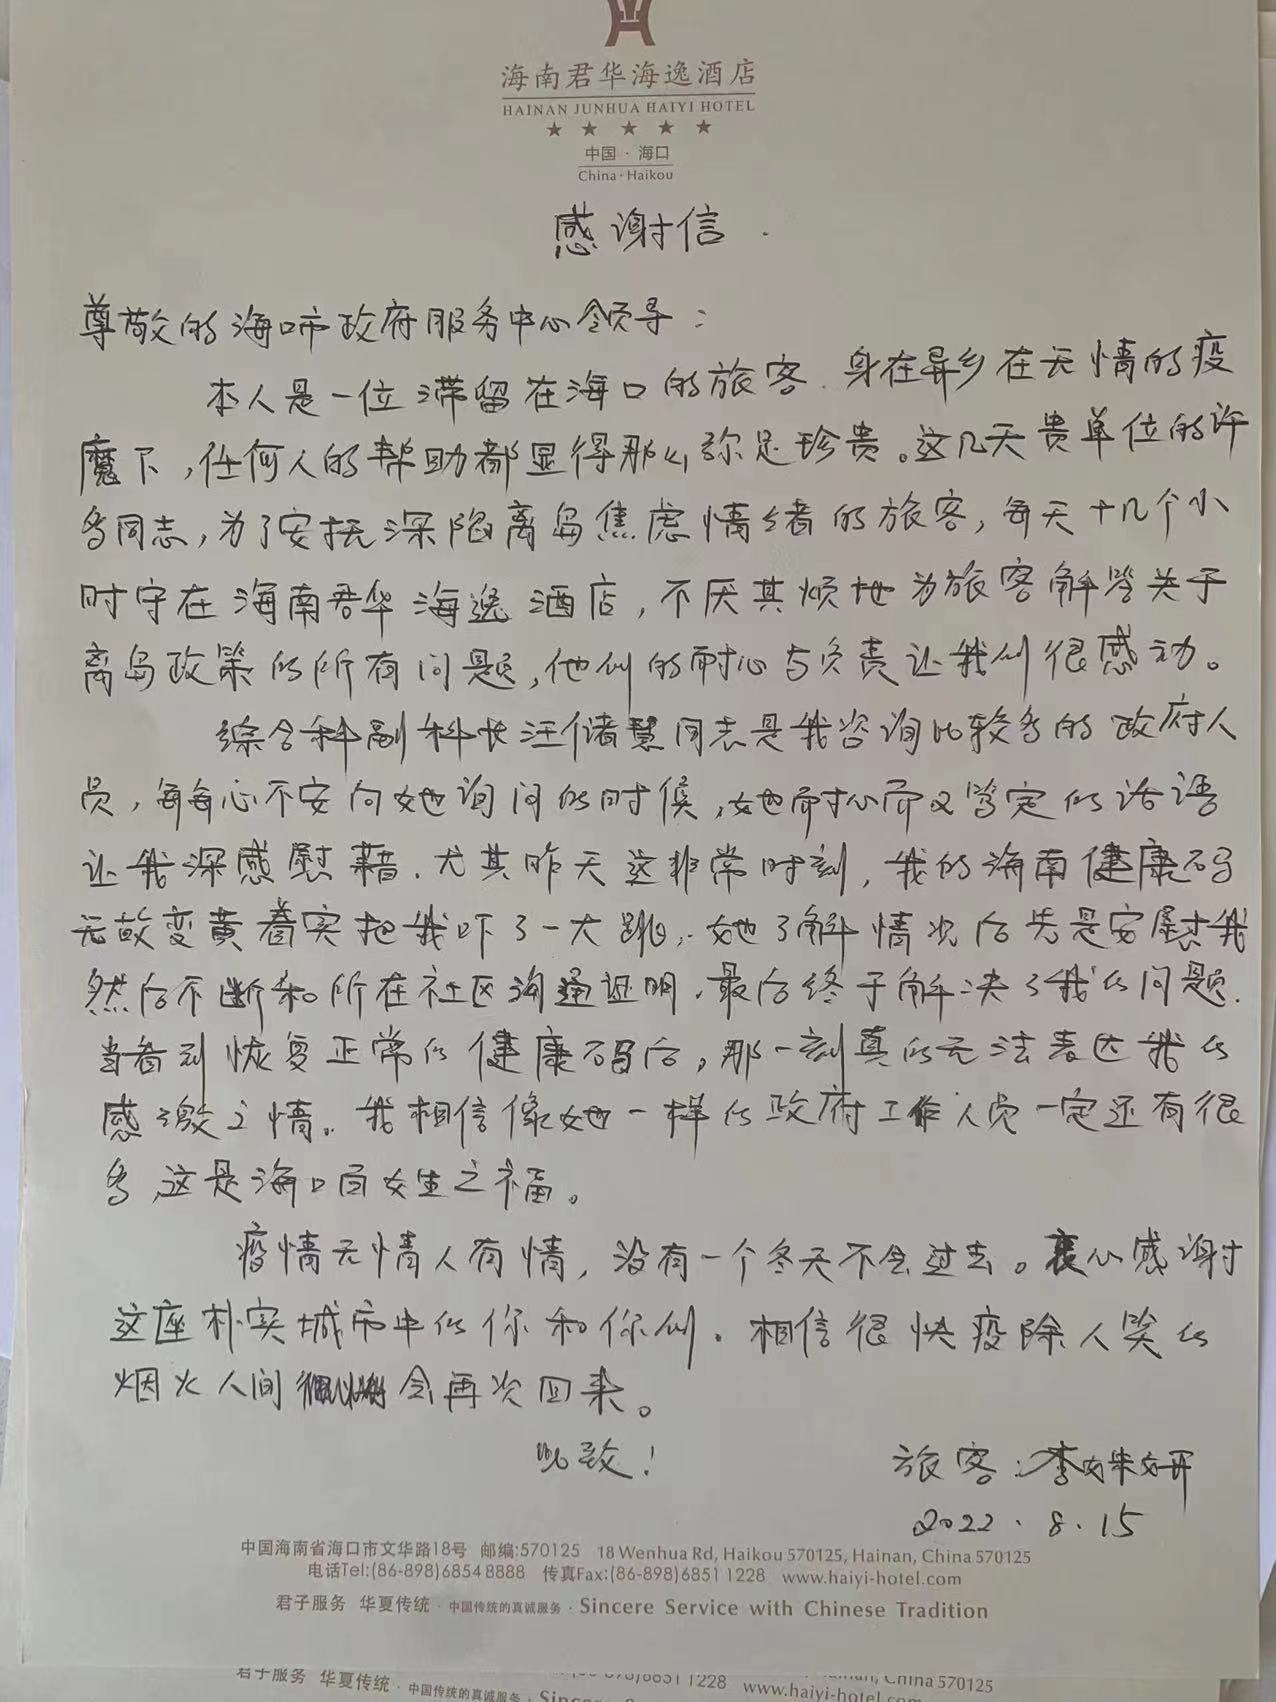 海南君华海逸酒店
HAINAN JUNHUA HAIYI HOTEL
★ ★ ★ ★ ★
中国·海口
China·Haikou
感谢信.
尊敬的海口市政府服务中心领导：
本人是一位滞留在海口的旅客.身在异乡在无情的疫
魔下,任何人的帮助都显得那么弥足珍贵。这几天贵单位的许
多同志,为了安抚深陷离岛焦虑情绪的旅客,每天十几个小
时守在海南君华海逸酒店,不厌其烦地为旅客解答关于
离岛政策的所有问题,他们的耐心与负责让我们很感动。
综合科副科长汪储慧同志是我咨询比较多的政府人
员,每每心不安向她询问的时候,她耐心而又笃定的话语
让我深感慰藉.尤其昨天这非常时刻,我的海南健康码
无故变黄着实把我吓了一大跳,她了解情况后先是安慰我
然后不断和所在社区沟通证明.最后终于解决了我的问题.
当看到恢复正常的健康码后,那一刻真的无法表达我的
感激之情。我相信像她一样的政府工作人员一定还有很
多,这是海口百姓之福。
疫情无情人有情,没有一个冬天不会过去。衷心感谢
这座朴实城市中的你和你们.相信很快疫除人笑的
烟火人间会再次回来。
此致!
旅客:李姝妍
2022.8.15
中国海南省海口市文华路18号 邮编:570125 18 Wenhua Rd, Haikou 570125, Hainan, China 570125
电话Tel:(86-898)6854 8888 传真Fax:(86-898)6851 1228 www.haiyi-hotel.com
君子服务 华夏传统·中国传统的真诚服务·Sincere Service with Chinese Tradition
君子服务 华夏传统·中国传统的真诚服务· 1228 www.haiyi-hotel.com China 570125